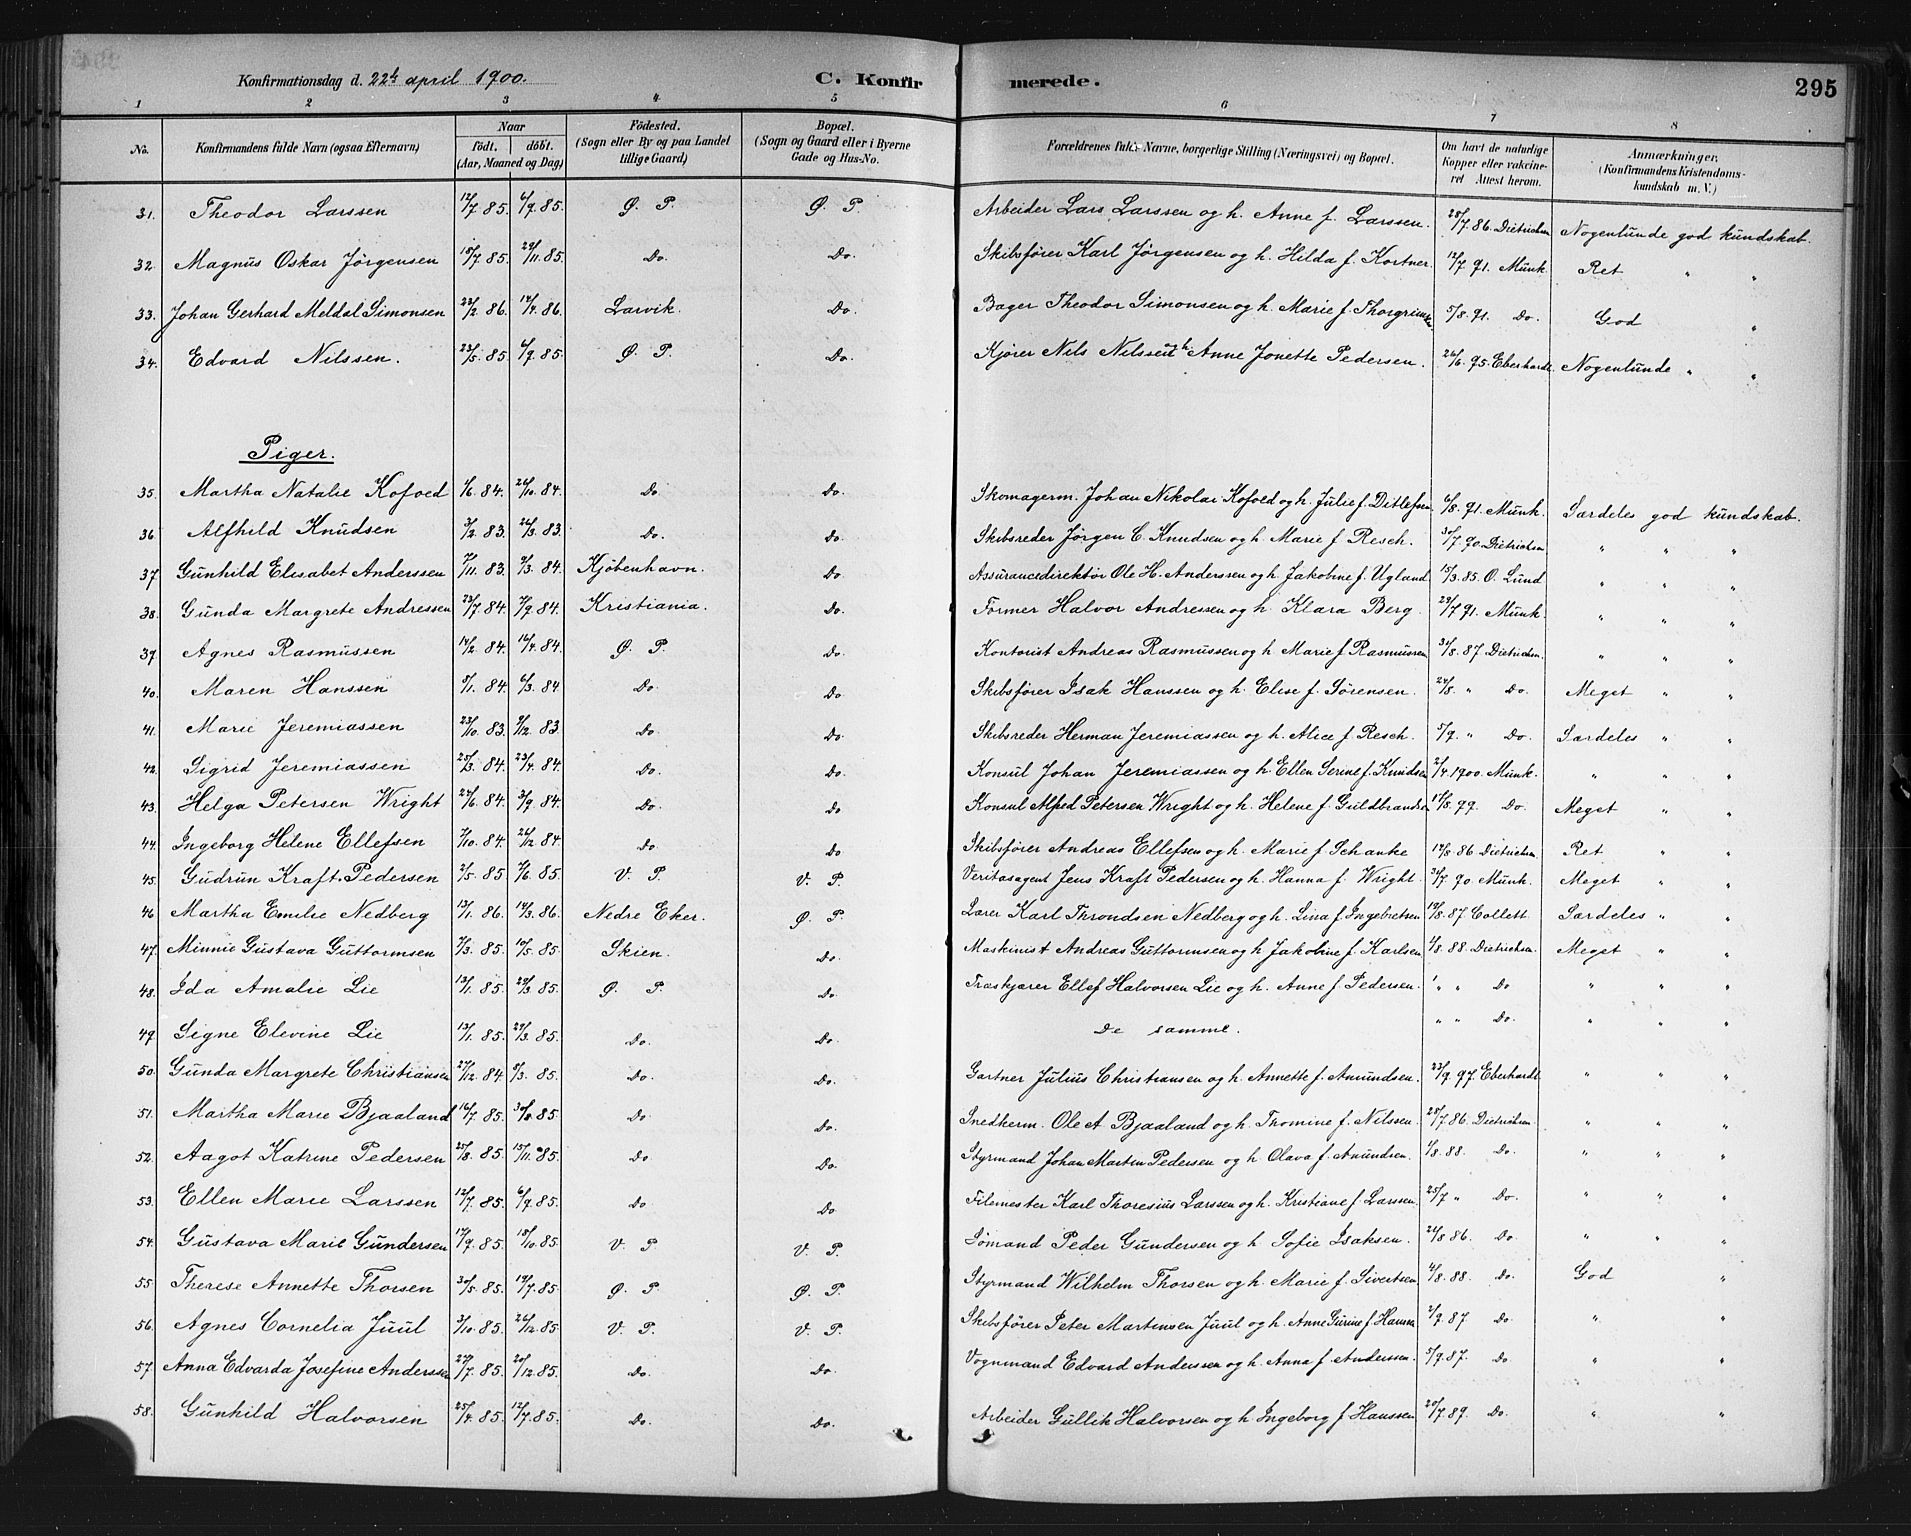 Konfirmationsdag d. 22de april 1900. C. Konfirmerede. 295
1 2 3 4 5 6 7 8
No. Konfirmandens fulde Navn (ogsaa Efternavn) Naar födt. döbt. (Aar, Maaned og Dag) Födested. (Sogn eller By og paa Landet tillige Gaard) Bopæl. (Sogn og Gaard eller i Byerne Gade og Hus-No. Forældrenes fulde Navne, borgerlige Stilling (Næringsvei) og Bopæl. Om havt de naturlige Kopper eller vakcineret Attest herom. Anmærkninger. (Konfirmandens Kristendomskundskab m. V.)
31. Theodor Larssen 12/7 85. 6/9 85. Ø. P. Ø. P. Arbeider Lars Larssen og h. Anne f. Larssen. 28/7 86 Dietrichsen Nogenlunde god kundskab.
32. Magnus Oskar Jörgensen 18/7 85. 29/11 85. Do. Do. Skibsfører Karl Jørgensen og h. Hilda f. Kortner. 12/7 91. Munk. Ret " "
33. Johan Gerhard Meldal Simonsen 23/2 86. 14/4 86. Larvik. Do. Bager Theodor Simonsen og h. Marie f. Thorgrimsen 5/8. 91. Do. God "
34. Edvard Nilssen. 23/5. 85. 6/9. 85. Ø. P. Do. Kjører Nils Nilssen og h. Anne Jonette Pedersen. 26/6. 95. Eberhardt. Nogenlunde " "
Piger.
35. Martha Natalie Kofoed 1/6 84. 26/10. 84. Do. Do. Skomagerm. Johan Nikolai Kofoed og h. Julie f. Ditlefsen 6/8. 91. Munk. Særdeles god kundskab.
36. Alfhild Knudsen 3/2 83. 26/3. 83. Do. Do. Skibsreder Jørgen C. Knudsen og h. Marie f. Resch. 30/7. 90. Dietrichsen " " "
37. Gunhild Elisabet Anderssen 7/11. 83. 9/3. 84. Kjøbenhavn. Do. Assurancedirektör Ole H. Anderssen og h. Jakobine f. Ugland 15/3. 85. O. Lund " " "
38. Gunda Margrete Andressen 23/7. 84. 7/9 84. Kristiania. Do. Former Halvor Andressen og h. Klara Berg. 29/7 91. Munk. " " "
37. Agnes Rasmussen 14/2 84. 16/4. 84. Ø. P. Do. Kontorist Andreas Rasmussen og h. Marie f. Rasmussen 31/8. 87 Dietrichsen. " " "
40. Maren Hanssen 8/1. 84. 6/3. 84. Do. Do. Skibsfører Isak Hanssen og h. Elise f. Sørensen. 24/8. " Do. Meget " "
41. Marie Jeremiassen 23/10. 83. 9/12. 83. Do. Do. Skibsreder Herman Jeremiassen og h. Alice f. Resch. 5/9. " Do. Særdeles " "
42. Sigrid Jeremiassen 25/3. 84. 23/4. 84. Do. Do. Konsul Johan Jeremiassen og h. Ellen Serine f. Knudsen 2/4. 1900. Munk. " " "
43. Helga Petersen Wright 24/6. 84. 3/9 84. Do. Do Konsul Alfred Petersen Wright og h. Helene f. Guldbrandsen 17/8. 99. Do. Meget " "
44. Ingeborg Helene Ellefsen 7/10. 84. 26/12. 84. Do Do Skibsfører Andreas Ellefsen og h. Marie f. Schanke 12/8. 86 Dietrichsen. Ret " "
45. Gudrun Kraft-Pedersen 2/5. 85. 7/6. 85. V. P. V. P. Veritasagent Jens Kraft Pedersen og h. Hanna f. Wright. 31/7. 90. Munk. Meget " "
46. Martha Emilie Nedberg 13/1. 86. 14/3. 86. Nedre Eker. Ø. P. Lærer Karl Throndsen Nedberg og h. Lina f. Ingebretsen 19/8. 87. Collett. Særdeles " "
47. Minnie Gustava Guttormsen 7/3. 85. 10/5. 85. Skien. Do. Maskinist Andreas Guttormsen og h. Jakobine f. Karlsen 4/8. 88. Dietrichsen. Meget " "
48. Ida Amalie Lie 13/1. 85. 29/3. 85. Ø. P. Do. Træskjærer Ellef Halvorsen Lie og h. Anne f. Pedersen. " " Do " " "
49. Signe Elevine Lie 13/1. 85. 29/3. 85. Do. Do. De samme. " " Do. " " "
50. Gunda Margrete Christiansen 27/12. 84. 8/3. 85. Do. Do. Gartner Julius Christiansen og h. Annette f. Amundsen. 23/9. 97. Eberhardt. " " "
51. Martha Marie Bjaaland 16/7. 85. 30/8. 85. Do Do. Snedkerm. Ole A Bjaaland og h. Thomine f. Nilssen. 28/7. 86. Dietrichsen. " " "
52. Aagot Katrine Pedersen 25/8. 85. 15/11. 85. Do Do. Styrmand Johan Martin Pedersen og h. Olava f. Amundsen. 4/8. 88. Do. " " "
53. Ellen Marie Larssen 12/7. 85. 6/9. 85. Do Do Filemester Karl Thoresius Larssen og h. Kristiane f. Larssen. 25/7 " Do. " " "
54. Gustava Marie Gundersen 17/9. 85. 18/10. 85. V. P. V. P. Sømand Peder Gundersen og h. Sofie Isaksen. 21/8 86. Do. " " "
55. Therese Annette Thorsen 30/5. 85. 19/7. 85. Ø. P. Ø. P. Styrmand Wilhelm Thorsen og h. Marie f. Sivertsen. 4/8. 88. Do. God "
56. Agnes Cornelia Juul 3/10. 85. 26/12. 85. V. P. V. P. Skibsfører Peter Martensen Juul og h. Anne Gurine f. Hansen 2/9. 87 Do. " "
57. Anna Edvarda Josefine Anderssen 27/7. 85. 20/12. 85. Do. Do. Vognmand Edvard Anderssen og h. Anna f. Anderssen. 5/9. 87. Do " "
58. Gunhild Halvorsen 25/4. 85. 12/7. 85. Do. Do. Arbeider Gullik Halvorsen og h. Ingeborg f. Hanssen 20/7. 89. Do. " "